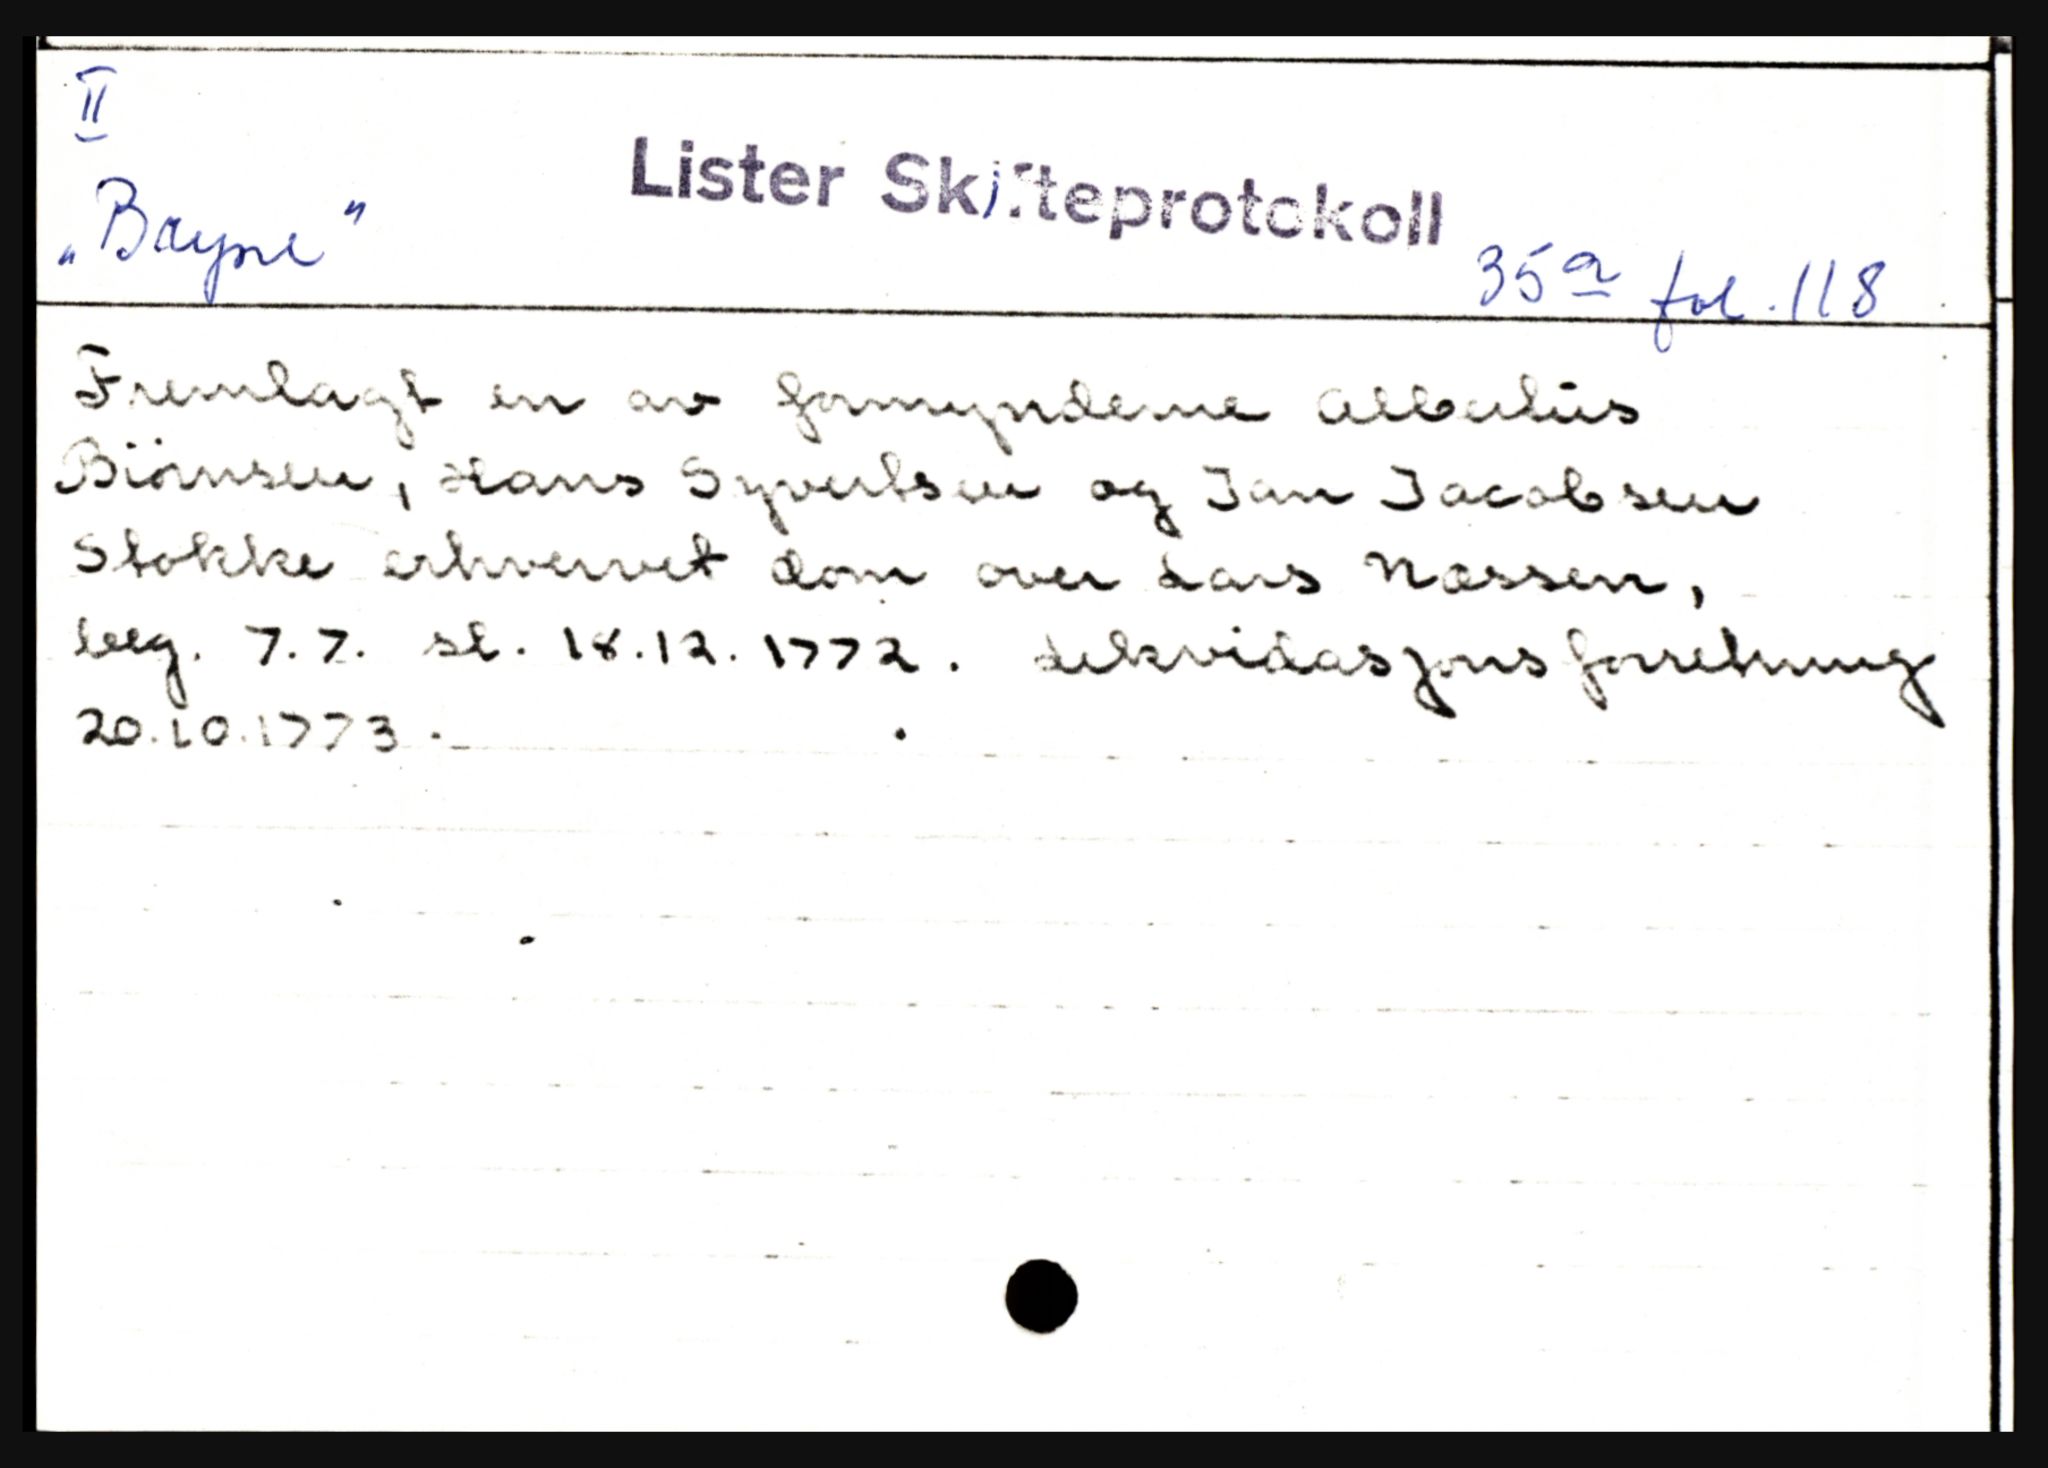 II
Lister Skifteprotokoll
„Bayne"
35a fol. 118
Fremlagt en av formynderne Albertus
Biörnsen, Hans Syvertsen og Jan Jacobsen
Stokke erhvervet dom over Lars Nassen,
beg. 7.7. sl. 18.12.1772. Likvidasjonsforretning
20.10.1773.